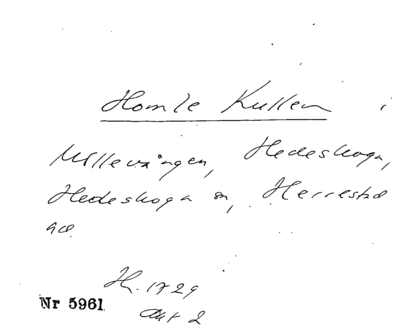 Homle Kullen i
Millevången, Hedeskoga,
Hedeskoga sn, Herrestad
hd.
H. 1729
Akt 2
Nr 5961